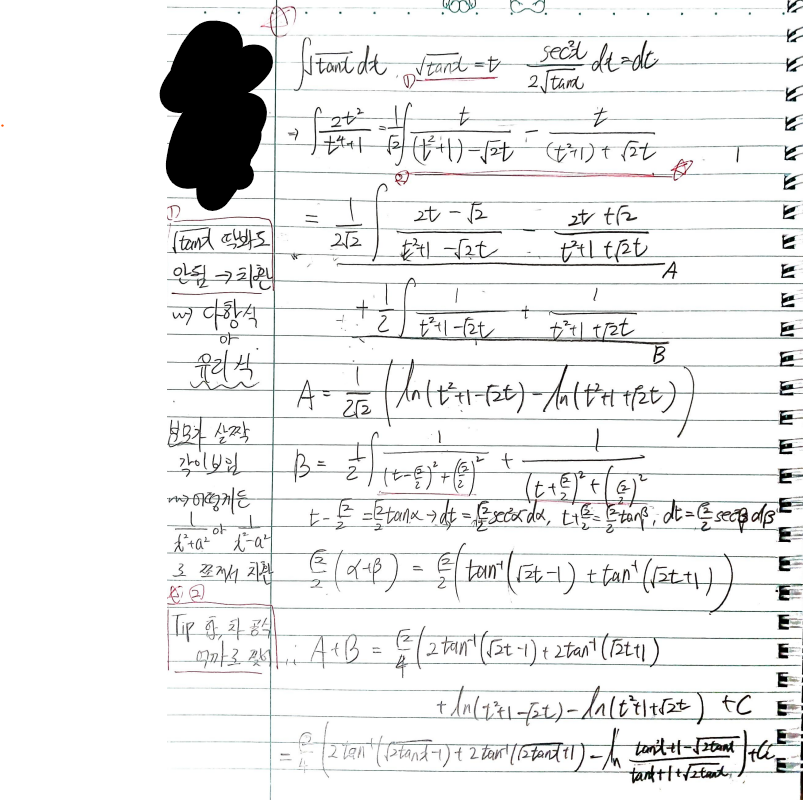 ∫√tanx dx √tanx = t sec²x / 2√tanx dx = dt
①
→ ∫ 2t² / t⁴+1 = 1/√2 ∫ t / (t²+1) - √2t - t / (t²+1) + √2t
②
= 1/2√2 ∫ 2t - √2 / t²+1 - √2t - 2t + √2 / t²+1 + √2t
A
+ 1/2 ∫ 1 / t²+1 - √2t + 1 / t²+1 + √2t
B
A = 1/2√2 ( ln(t²+1-√2t) - ln(t²+1+√2t) )
B = 1/2 ∫ 1 / (t - √2/2)² + (√2/2)² + 1 / (t + √2/2)² + (√2/2)²
t - √2/2 = √2/2 tanα → dt = √2/2 sec²α dα, t + √2/2 = √2/2 tanβ, dt = √2/2 sec²β dβ
√2/2 (α+β) = √2/2 ( tan⁻¹(√2t-1) + tan⁻¹(√2t+1) )
∴ A+B = √2/4 ( 2tan⁻¹(√2t-1) + 2tan⁻¹(√2t+1)
+ ln(t²+1-√2t) - ln(t²+1+√2t) ) + C
= √2/4 ( 2tan⁻¹(√2tanx-1) + 2tan⁻¹(√2tanx+1) - ln tanx+1-√2tanx / tanx+1+√2tanx ) + C
①
√tanx 딱봐도
안됨 → 치환
⇝ 다항식
or
유리식
분모가 살짝
각이보임
⇝ 어떻게든
1/x²+a² or 1/x²-a²
로 쪼개서 치환
②
Tip 합, 차 공식